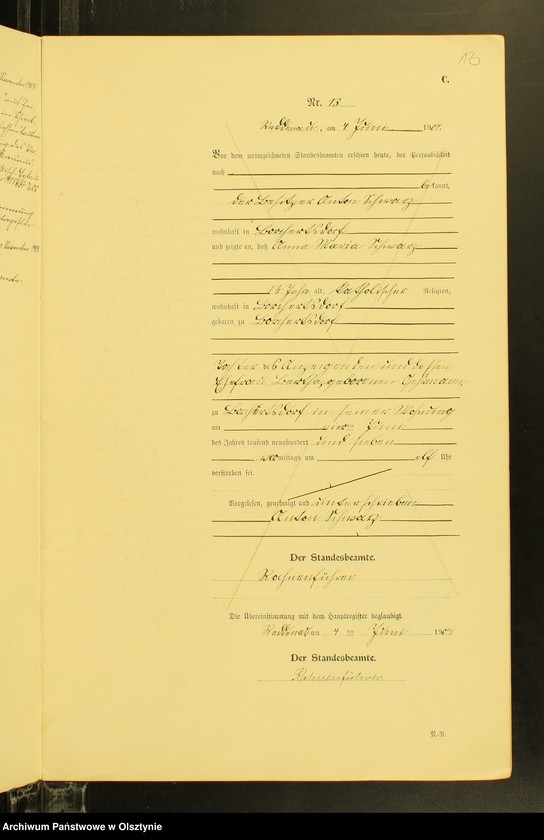 13
C.
Nr. 13
Reddenau, am 4 Juni 1907.
Vor dem unterzeichneten Standesbeamten erschien heute, der Persönlichkeit
nach
bekannt,
der Besitzer Anton Schwarz
wohnhaft in Borchertsdorf
und zeigte an, daß Anna Maria Schwarz
15 Jahr alt, katholischer Religion,
wohnhaft in Borchertsdorf
geboren zu Borchertsdorf
Tochter des Anzeigenden und dessen
Ehefrau Bertha, geborenen
zu Borchertsdorf in seiner Wohnung
am vier Juni
des Jahres tausend neunhundert und sieben
mittags um elf Uhr
verstorben sei.
Vorgelesen, genehmigt und unterschrieben
Anton Schwarz
Der Standesbeamte.
Die Übereinstimmung mit dem Hauptregister beglaubigt
Reddenau am 4 ten Juni 1907
Der Standesbeamte.
Archiwum Państwowe w Olsztynie